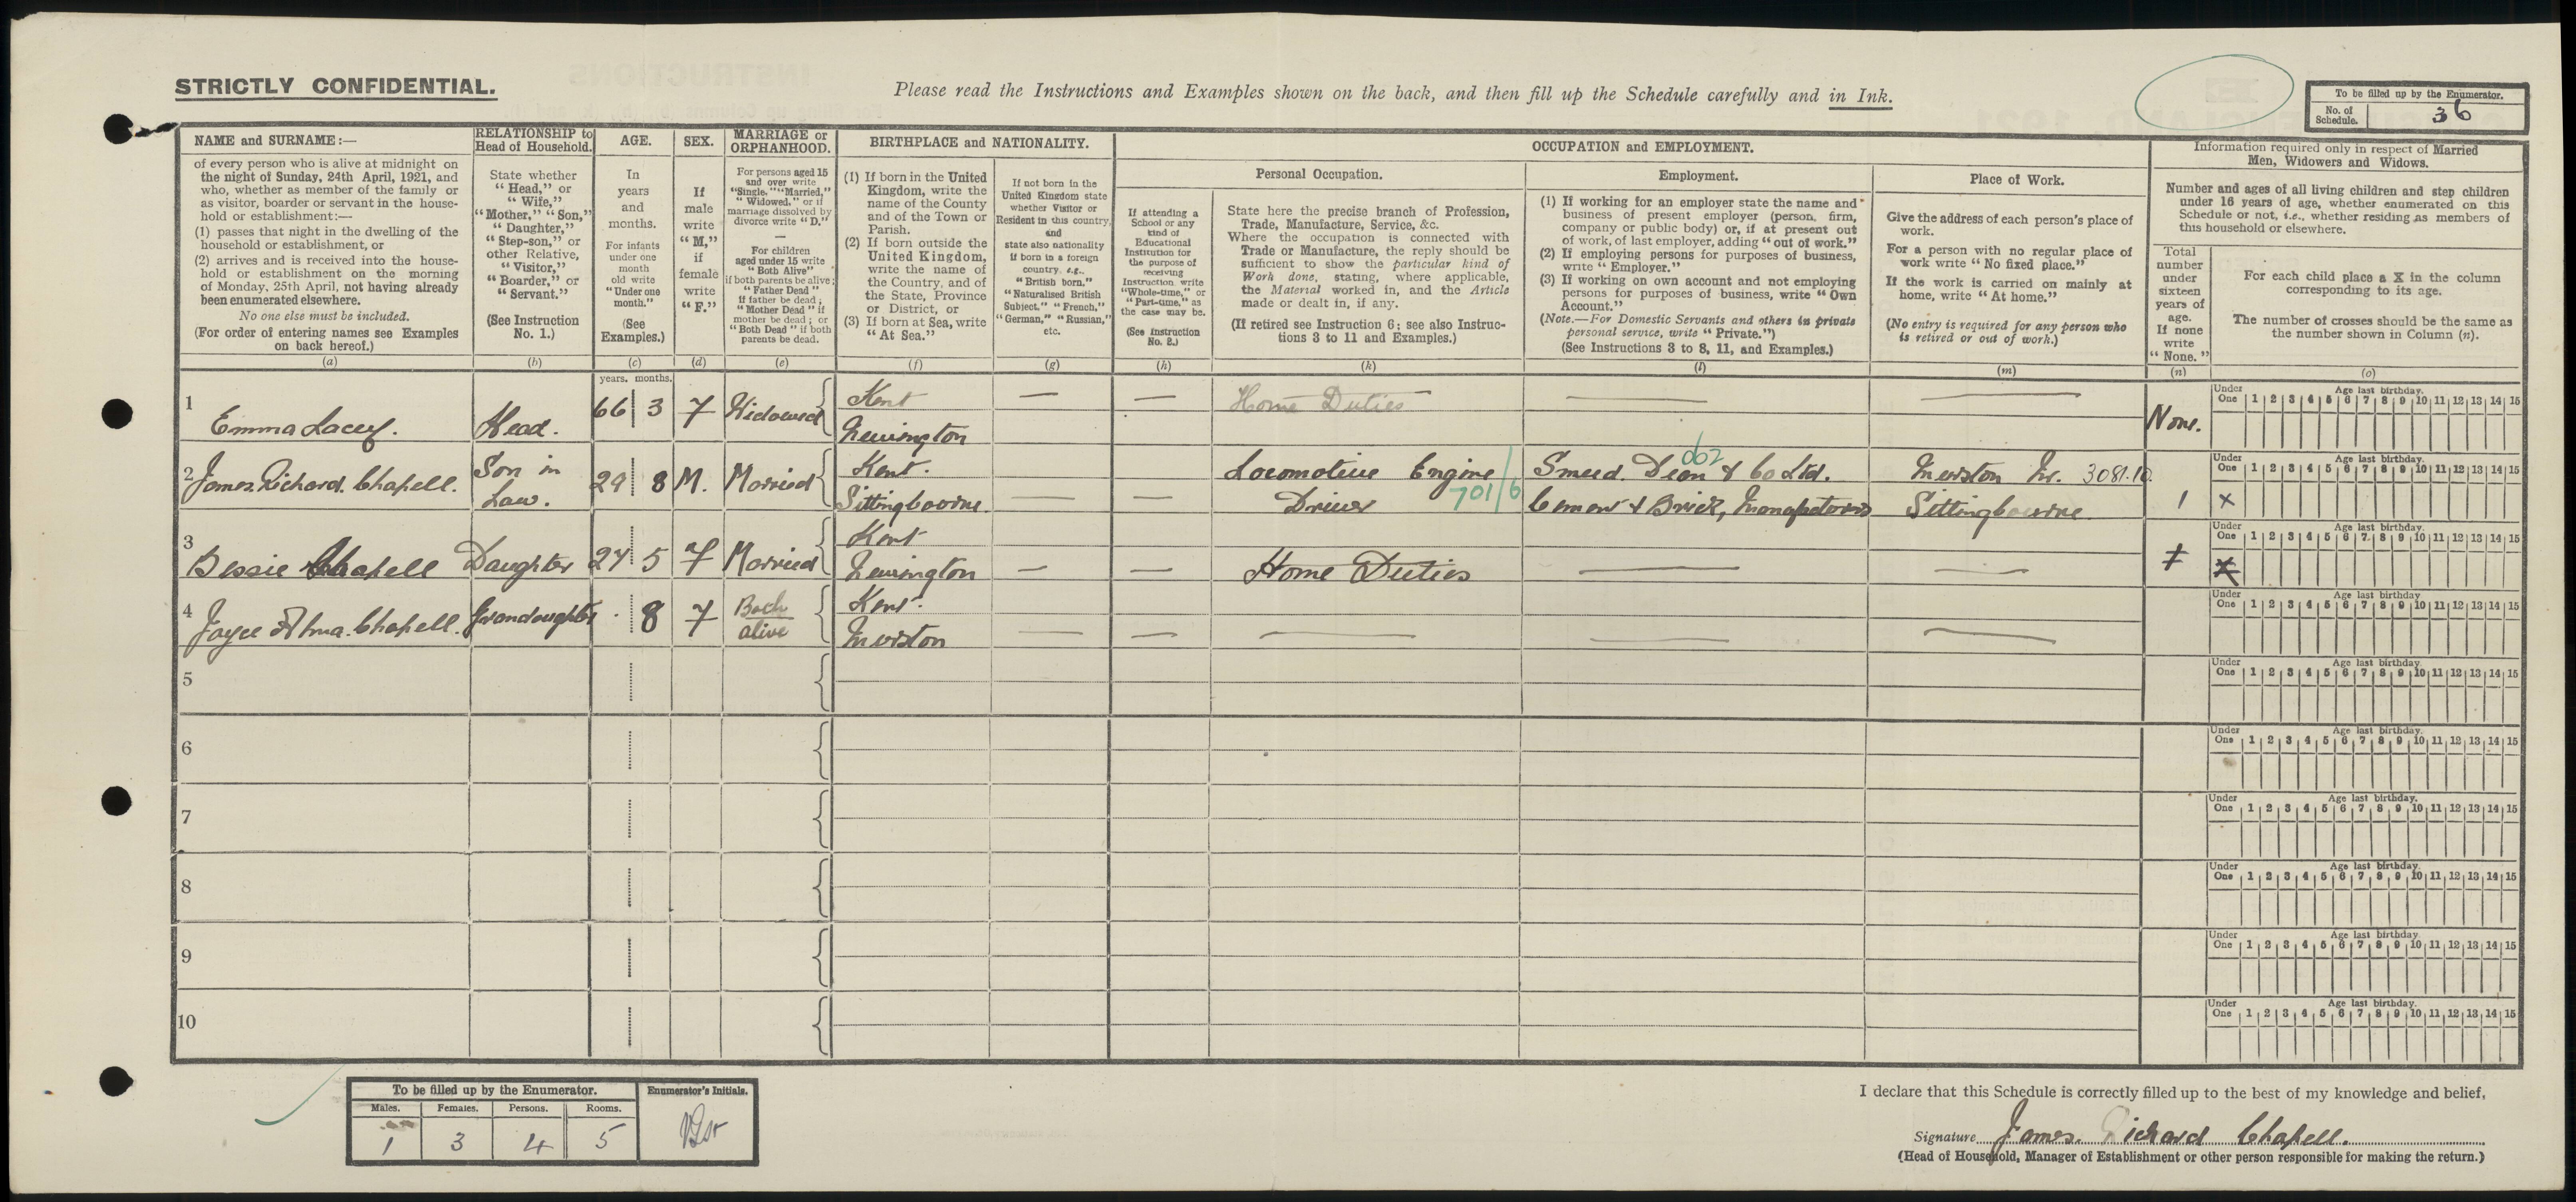 STRICTLY CONFIDENTIAL.
Please read the Instructions and Examples shown on the back, and then fill up the Schedule carefully and in Ink.
To be filled up by the Enumerator.
No. of Schedule. 36
NAME and SURNAME:—
of every person who is alive at midnight on
the night of Sunday, 24th April, 1921, and
who, whether as member of the family or
as visitor, boarder or servant in the house-
hold or establishment:—
(1) passes that night in the dwelling of the
household or establishment, or
(2) arrives and is received into the house-
hold or establishment on the morning
of Monday, 25th April, not having already
been enumerated elsewhere.
No one else must be included.
(For order of entering names see Examples
on back hereof.)
(a)
RELATIONSHIP to
Head of Household.
State whether
“Head,” or
“Wife,”
“Mother,” “Son,”
“Daughter,”
“Step-son,” or
other Relative,
“Visitor,”
“Boarder,” or
“Servant.”
(See Instruction
No. 1.)
(b)
AGE.
In
years
and
months.
For infants
under one
month
old write
“Under one
month.”
(See
Examples.)
(c)
SEX.
If
male
write
“M,”
if
female
write
“F.”
(d)
MARRIAGE or
ORPHANHOOD.
For persons aged 15
and over write
“Single,” “Married,”
“Widowed,” or if
marriage dissolved by
divorce write “D.”
—
For children
aged under 15 write
“Both Alive”
if both parents be alive;
“Father Dead”
if father be dead;
“Mother Dead” if
mother be dead; or
“Both Dead” if both
parents be dead.
(e)
BIRTHPLACE and NATIONALITY.
(1) If born in the United
Kingdom, write the
name of the County
and of the Town or
Parish.
(2) If born outside the
United Kingdom,
write the name of
the Country, and of
the State, Province
or District, or
(3) If born at Sea, write
“At Sea.”
(f)
If not born in the
United Kingdom state
whether Visitor or
Resident in this country,
and
state also nationality
if born in a foreign
country, i.e.,
“British born.”
“Naturalised British
Subject,” “French,”
“German,” “Russian,”
etc.
(g)
OCCUPATION and EMPLOYMENT.
If attending a
School or any
kind of
Educational
Institution for
the purpose of
receiving
Instruction write
“Whole-time,” or
“Part-time,” as
the case may be.
(See Instruction
No. 2.)
(h)
Personal Occupation.
State here the precise branch of Profession,
Trade, Manufacture, Service, &c.
Where the occupation is connected with
Trade or Manufacture, the reply should be
sufficient to show the particular kind of
Work done, stating, where applicable,
the Material worked in, and the Article
made or dealt in, if any.
(If retired see Instruction 6; see also Instruc-
tions 3 to 11 and Examples.)
(k)
Employment.
(1) If working for an employer state the name and
business of present employer (person, firm,
company or public body) or, if at present out
of work, of last employer, adding “out of work.”
(2) If employing persons for purposes of business,
write “Employer.”
(3) If working on own account and not employing
persons for purposes of business, write “Own
Account.”
(Note.—For Domestic Servants and others in private
personal service, write “Private.”)
(See Instructions 3 to 8, 11, and Examples.)
(l)
Place of Work.
Give the address of each person's place of
work.
For a person with no regular place of
work write “No fixed place.”
If the work is carried on mainly at
home, write “At home.”
(No entry is required for any person who
is retired or out of work.)
(m)
Information required only in respect of Married
Men, Widowers and Widows.
Number and ages of all living children and step children
under 16 years of age, whether enumerated on this
Schedule or not, i.e., whether residing as members of
this household or elsewhere.
Total
number
under
sixteen
years of
age.
If none
write
“None.”
(n)
For each child place a X in the column
corresponding to its age.
The number of crosses should be the same as
the number shown in Column (n).
(o)
years. months.
1 Emma Lacey. Head. 66 3 F Widowed Kent Newington — — Home Duties — — None.
Under One Age last birthday. 1 2 3 4 5 6 7 8 9 10 11 12 13 14 15
2 James Richard. Chapell. Son in Law. 29 8 M. Married Kent. Sittingbourne. — — Locomotive Engine Driver 701/6 Smeed. Dean & Co Ltd. 062 Cement & Brick, Manufactures Murston Nr. Sittingbourne 3081.10 1 X
Under One Age last birthday. 1 2 3 4 5 6 7 8 9 10 11 12 13 14 15
3 Bessie Chapell Daughter 27 5 F Married Kent Newington — — Home Duties — — 1 X
Under One Age last birthday. 1 2 3 4 5 6 7 8 9 10 11 12 13 14 15
4 Joyce Alma. Chapell. Grandaughter . 8 F Both alive Kent. Murston — — — — —
Under One Age last birthday 1 2 3 4 5 6 7 8 9 10 11 12 13 14 15
5
Under One Age last birthday 1 2 3 4 5 6 7 8 9 10 11 12 13 14 15
6
Under One Age last birthday. 1 2 3 4 5 6 7 8 9 10 11 12 13 14 15
7
Under One Age last birthday. 1 2 3 4 5 6 7 8 9 10 11 12 13 14 15
8
Under One Age last birthday. 1 2 3 4 5 6 7 8 9 10 11 12 13 14 15
9
Under One Age last birthday. 1 2 3 4 5 6 7 8 9 10 11 12 13 14 15
10
Under One Age last birthday. 1 2 3 4 5 6 7 8 9 10 11 12 13 14 15
To be filled up by the Enumerator.
Males. Females. Persons. Rooms.
1 3 4 5
Enumerator's Initials.
I declare that this Schedule is correctly filled up to the best of my knowledge and belief,
Signature James. Richard Chapell.
(Head of Household, Manager of Establishment or other person responsible for making the return.)